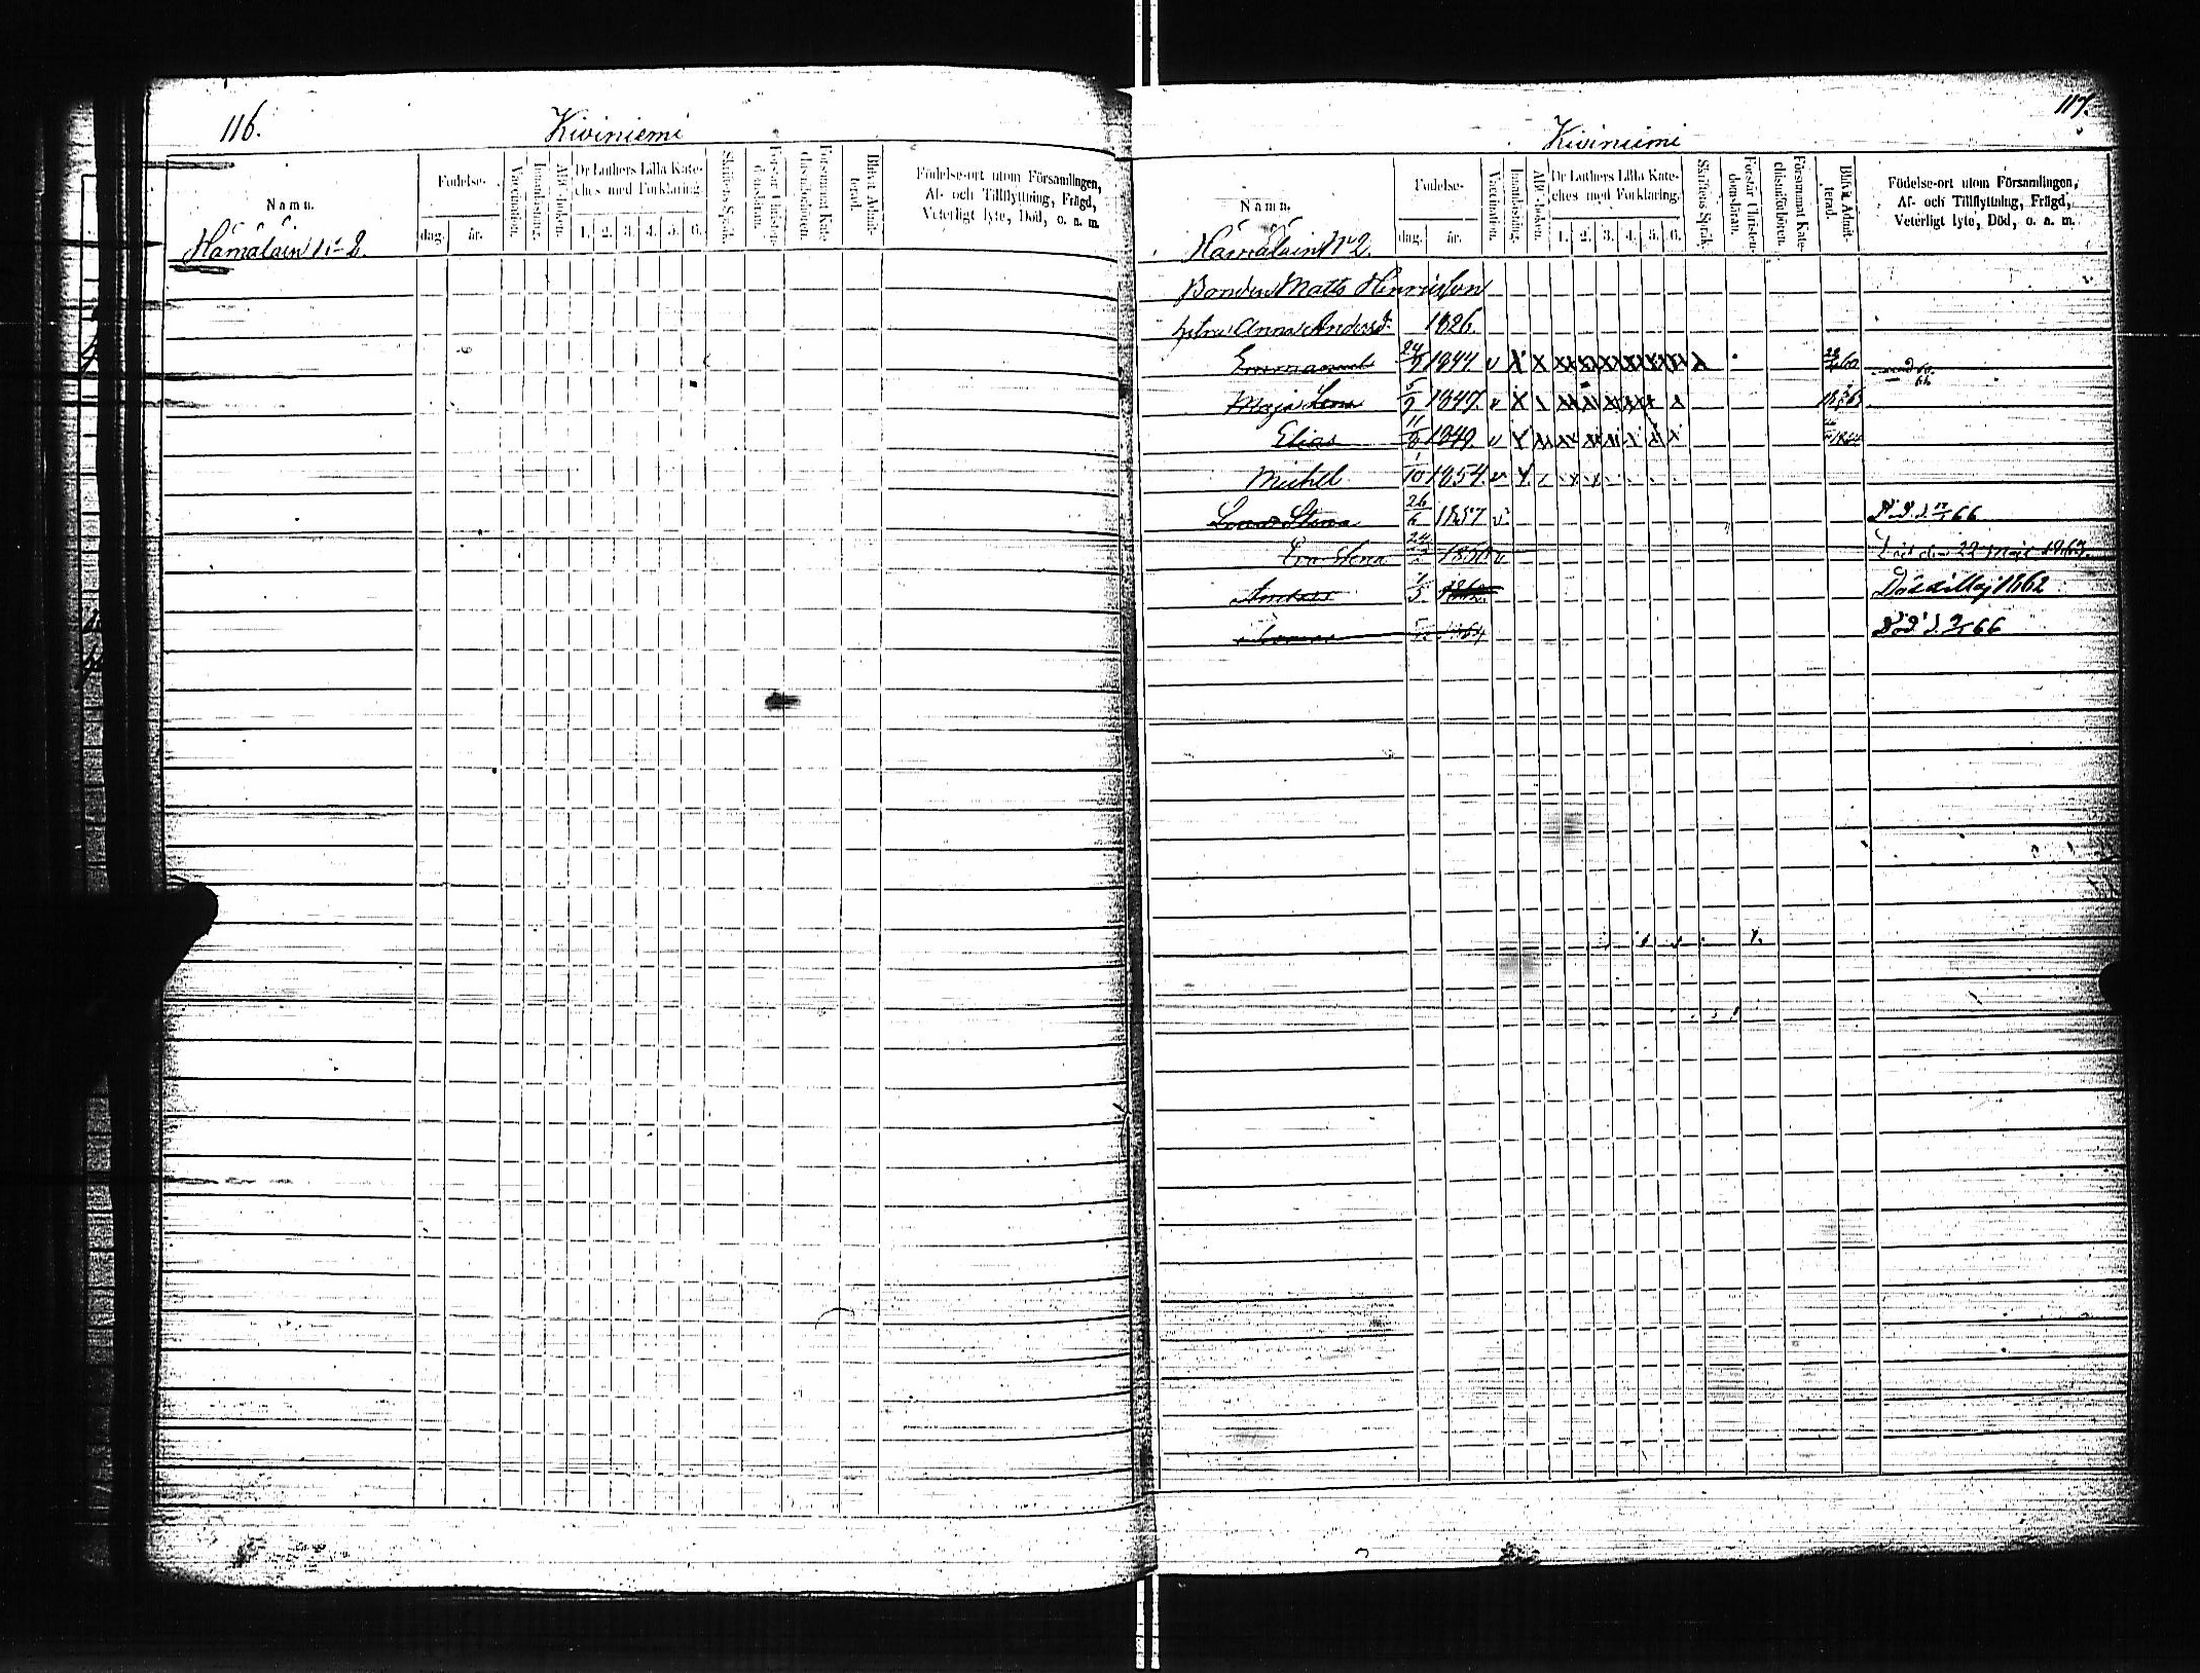 116.
Kiviniemi
Namn.
Födelse-
dag.
år.
Vaccination.
Innanläsning.
ABC-boken.
Dr Luthers Lilla Kate-
ches med Förklaring.
1. 2. 3. 4. 5. 6.
Skriftens Språk.
Förstår Christen-
domsläran.
Försummat Kate-
chismiförhören.
Blifvit Admit-
terad.
Födelse-ort utom Församlingen,
Af- och Tillflyttning, Frägd,
Veterligt lyte, Död, o. a. m.
Hämäläin No 2.
117.
Kiviniemi
Namn.
Födelse-
dag.
år.
Vaccination.
Innanläsning.
ABC-boken.
Dr Luthers Lilla Kate-
ches med Förklaring.
1. 2. 3. 4. 5. 6.
Skriftens Språk.
Förstår Christen-
domsläran.
Försummat Kate-
chismiförhören.
Blifvit Admit-
terad.
Födelse-ort utom Församlingen,
Af- och Tillflyttning, Frägd,
Veterligt lyte, Död, o. a. m.
Hämäläin No 2.
Bonden Matts Henriksson
Anna Andersd. 1826.
Emmanuel 1844 v
Maja Lena 5/9 1847. v
Elias 1849. v
Michel 1/10 1854. v
Stina 26/6 1857 v Död d. 66
Eva Stina v Död den 22 1865.
Anders Död i Maj 1862
1864 Död d. 66